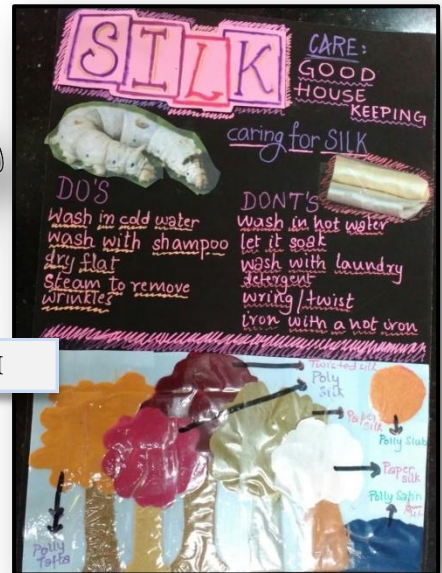 SILK
CARE:
GOOD
HOUSE
KEEPING
caring for SILK
DO'S
Wash in cold water
wash with shampoo
dry flat
Steam to remove
wrinkles
DONT'S
Wash in hot water
let it soak
wash with laundry
detergent
wring/twist
iron with a hot iron
Twisted silk
Poly
Silk
Paper
silk
Polly Slub
Paper
silk
Polly Satin
Polly
Tafta